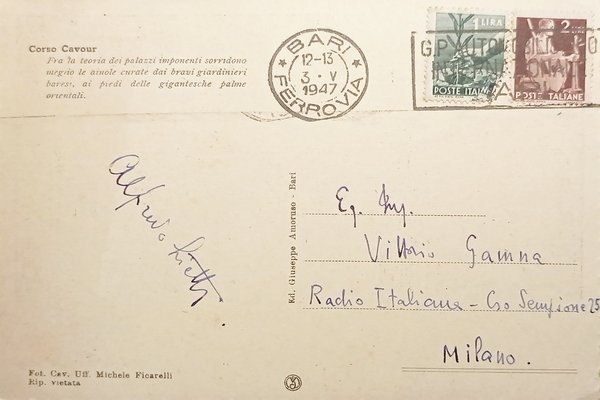 Corso Cavour
Fra la teoria dei palazzi imponenti sorridono
meglio le aiuole curate dai bravi giardinieri
baresi, ai piedi delle gigantesche palme
orientali.
BARI
12-13
3 · V
1947
FERROVIA
1 LIRA
POSTE ITALIANE
2 LIRE
POSTE ITALIANE
Alfredo
Ed. Giuseppe Amoruso - Bari
Eg. Ing.
Vittorio Gamna
Radio Italiana - Cso Sempione 25
Milano.
Fot. Cav. Uff. Michele Ficarelli
Rip. vietata